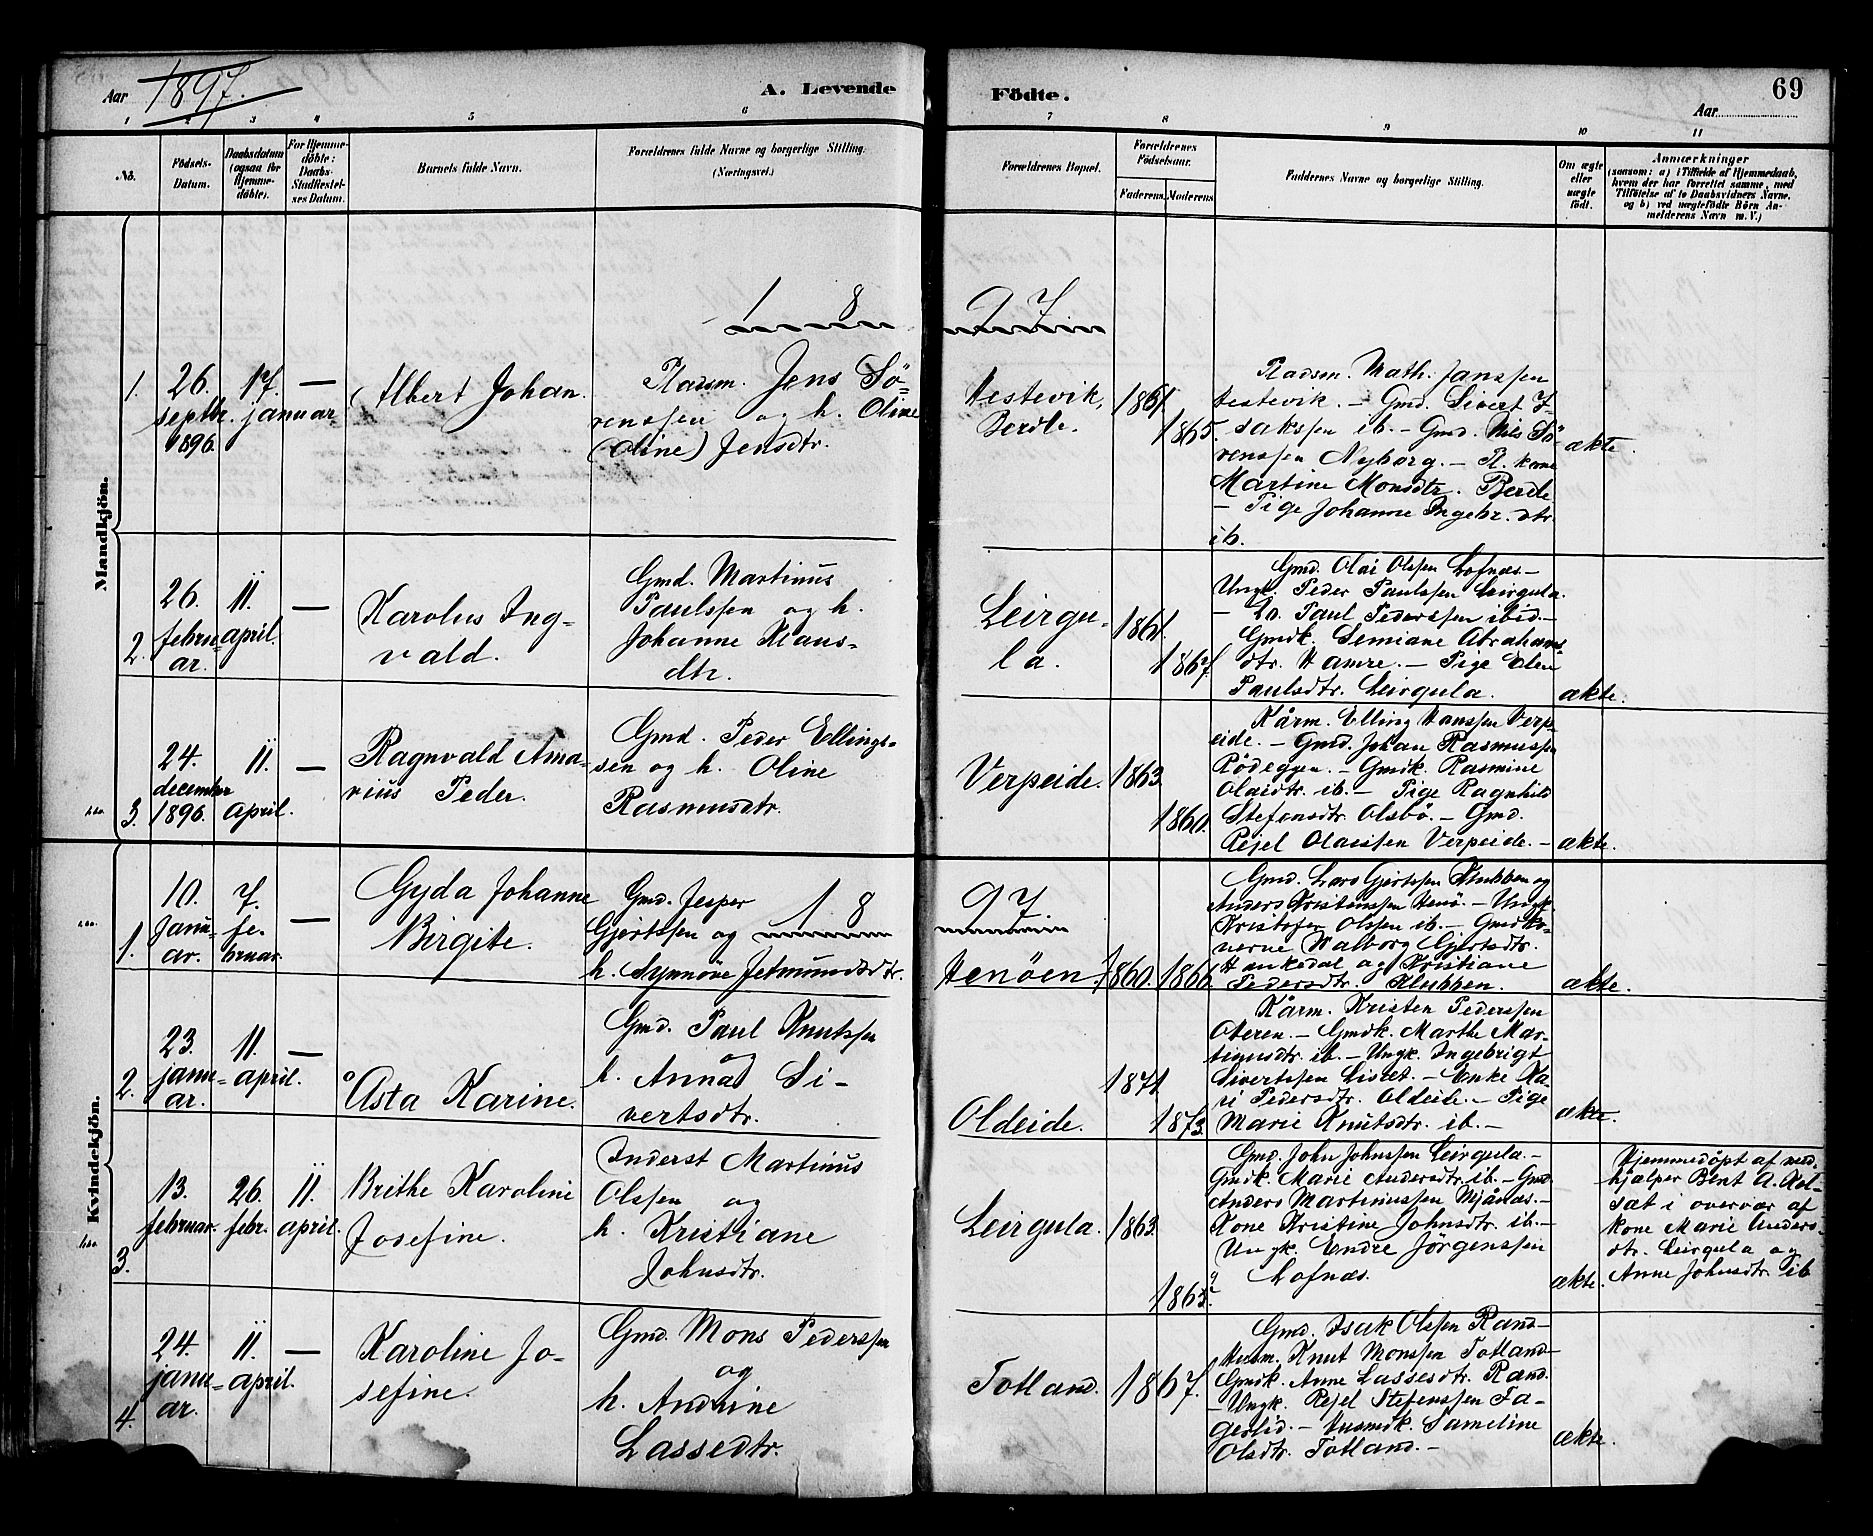 Aar 1897.
A. Levende
Födte.
69
Aar
1 2 3 4 5 6 7 8 9 10 11
No.
Födsels-
Datum.
Daabsdatum
(ogsaa for
Hjemme-
döbte).
For Hjemme-
döbte:
Daabs-
Stadfæstel-
ses Datum.
Barnets fulde Navn.
Forældrenes fulde Navne og borgerlige Stilling.
(Næringsvei.)
Forældrenes Bopæl.
Forældrenes
Födselsaar.
Faderens.
Moderens.
Faddernes Navne og borgerlige Stilling.
Om ægte
eller
uægte
født.
Anmærkninger
(saasom: a) i Tilfælde af Hjemmedaab,
hvem der har forrettet samme, med
Tilföielse af to Daabsvidners Navne,
og b) ved uægtefödte Börn An-
melderens Navn m. V.)
Mandkjön.
1 8 9 7
1.
26.
septbr.
1896.
17.
januar
—
Albert Johan.
Pladsm. Jens Sö-
renssen og h. Oline
(Oline) Jensdtr.
Hestevik,
Berdle.
1861.
1865.
Pladsm. Math. Janssen
Hestevik. — Gmd. Sivert I-
sakssen ib. — Gmd. Nils Sö-
renssen Nyborg. — Pl. kone
Martine Monsdtr. Berdle
— Pige Johanne Ingebr. dtr.
ib.
ækte.
2.
26.
febru-
ar.
11.
april.
—
Karolus Ing-
vald.
Gmd. Martinus
Paulssen og h.
Johanne Klaus-
dtr.
Leirgu-
la.
1861.
1867.
Gmd. Olai Olssen Lofnæs. —
Ungk. Peder Paulssen Leirgula.
— Do. Paul Pederssen ibid. —
Gmdk. Semiane Abrahams-
dtr. Hamre. — Pige Elen
Paulsdtr. Leirgula.
ækte.
3.
24.
december
1896.
11.
april.
—
Ragnvald Ama-
rius Peder.
Gmd. Peder Ellings-
sen og h. Oline
Rasmusdtr.
Verpeide.
1863.
1860.
Kårm. Elling Hanssen Verp-
eide. — Gmd. Johan Rasmussen
Rödeggen. — Gmdk. Rasmine
Olaidtr. ib. — Pige Ragnhild
Stefansdtr. Olsbö. — Gmd.
Rejel Olaissen Verpeide. —
ækte.
Kvindekjön.
1 8 9 7
1.
10.
janu-
ar.
7.
fe-
bruar.
—
Gyda Johanne
Birgite.
Gmd. Jesper
Gjertssen og
h. Synnöve Jetmundsdtr.
Henöen.
1860.
1866.
Gmd. Lars Gjertssen Klubben og
Anders Kristenssen Henö. — Ungk.
Kristofer Olssen ib. — Gmdko-
nerne Walborg Gjertsdtr.
Haukedal og Kristiane
Pedersdtr. Klubben.
ækte.
2.
23.
janu-
ar.
11.
april.
—
Åsta Karine.
Gmd. Paul Knutssen
og
h. Anna Si-
vertsdtr.
Oldeide.
1871
1873.
Kårm. Kristen Pederssen
Oteren. — Gmdk. Marthe Mar-
tinusdtr. ib. — Ungk. Ingebrigt
Sivertssen Liset. — Enke Ka-
ri Pedersdtr. Oldeide. — Pige
Marie Knutsdtr. ib. —
ækte.
3.
13.
februar.
26.
febr.
11.
april.
Brithe Karoline
Josefine.
Inderst Martinus
Olssen og
h. Kristiane
Johnsdtr.
Leirgula.
1863.
Gmd. John Johnssen Leirgula. —
Gmdk. Marie Andersdtr. ib. — Gmd.
Anders Martinussen Mjånæs. —
Kone Kristine Johnsdtr. ib. —
Ungk. Endre Jörgenssen
Lofnæs.
ækte.
Hjemmedöpt af med-
hjælper Bent A. Röl-
sæt i overvær af
kone Marie Anders-
dtr. Leirgula og
Anne Johnsdtr. ib
4.
24.
janu-
ar.
11.
april.
—
Karoline Jo-
sefine.
Gmd. Mons Pederssen
og
h. Andrine
Lassedtr.
Totland.
1867.
Gmd. Isak Olssen Rand —
Husm. Knut Monssen Totland —
Gmdk. Anne Lassesdtr. Rand.
— Ungk. Rejel Stefenssen Fa-
gerlid. — Husmdk. Sameline
Olsdtr. Totland. —
ækte.